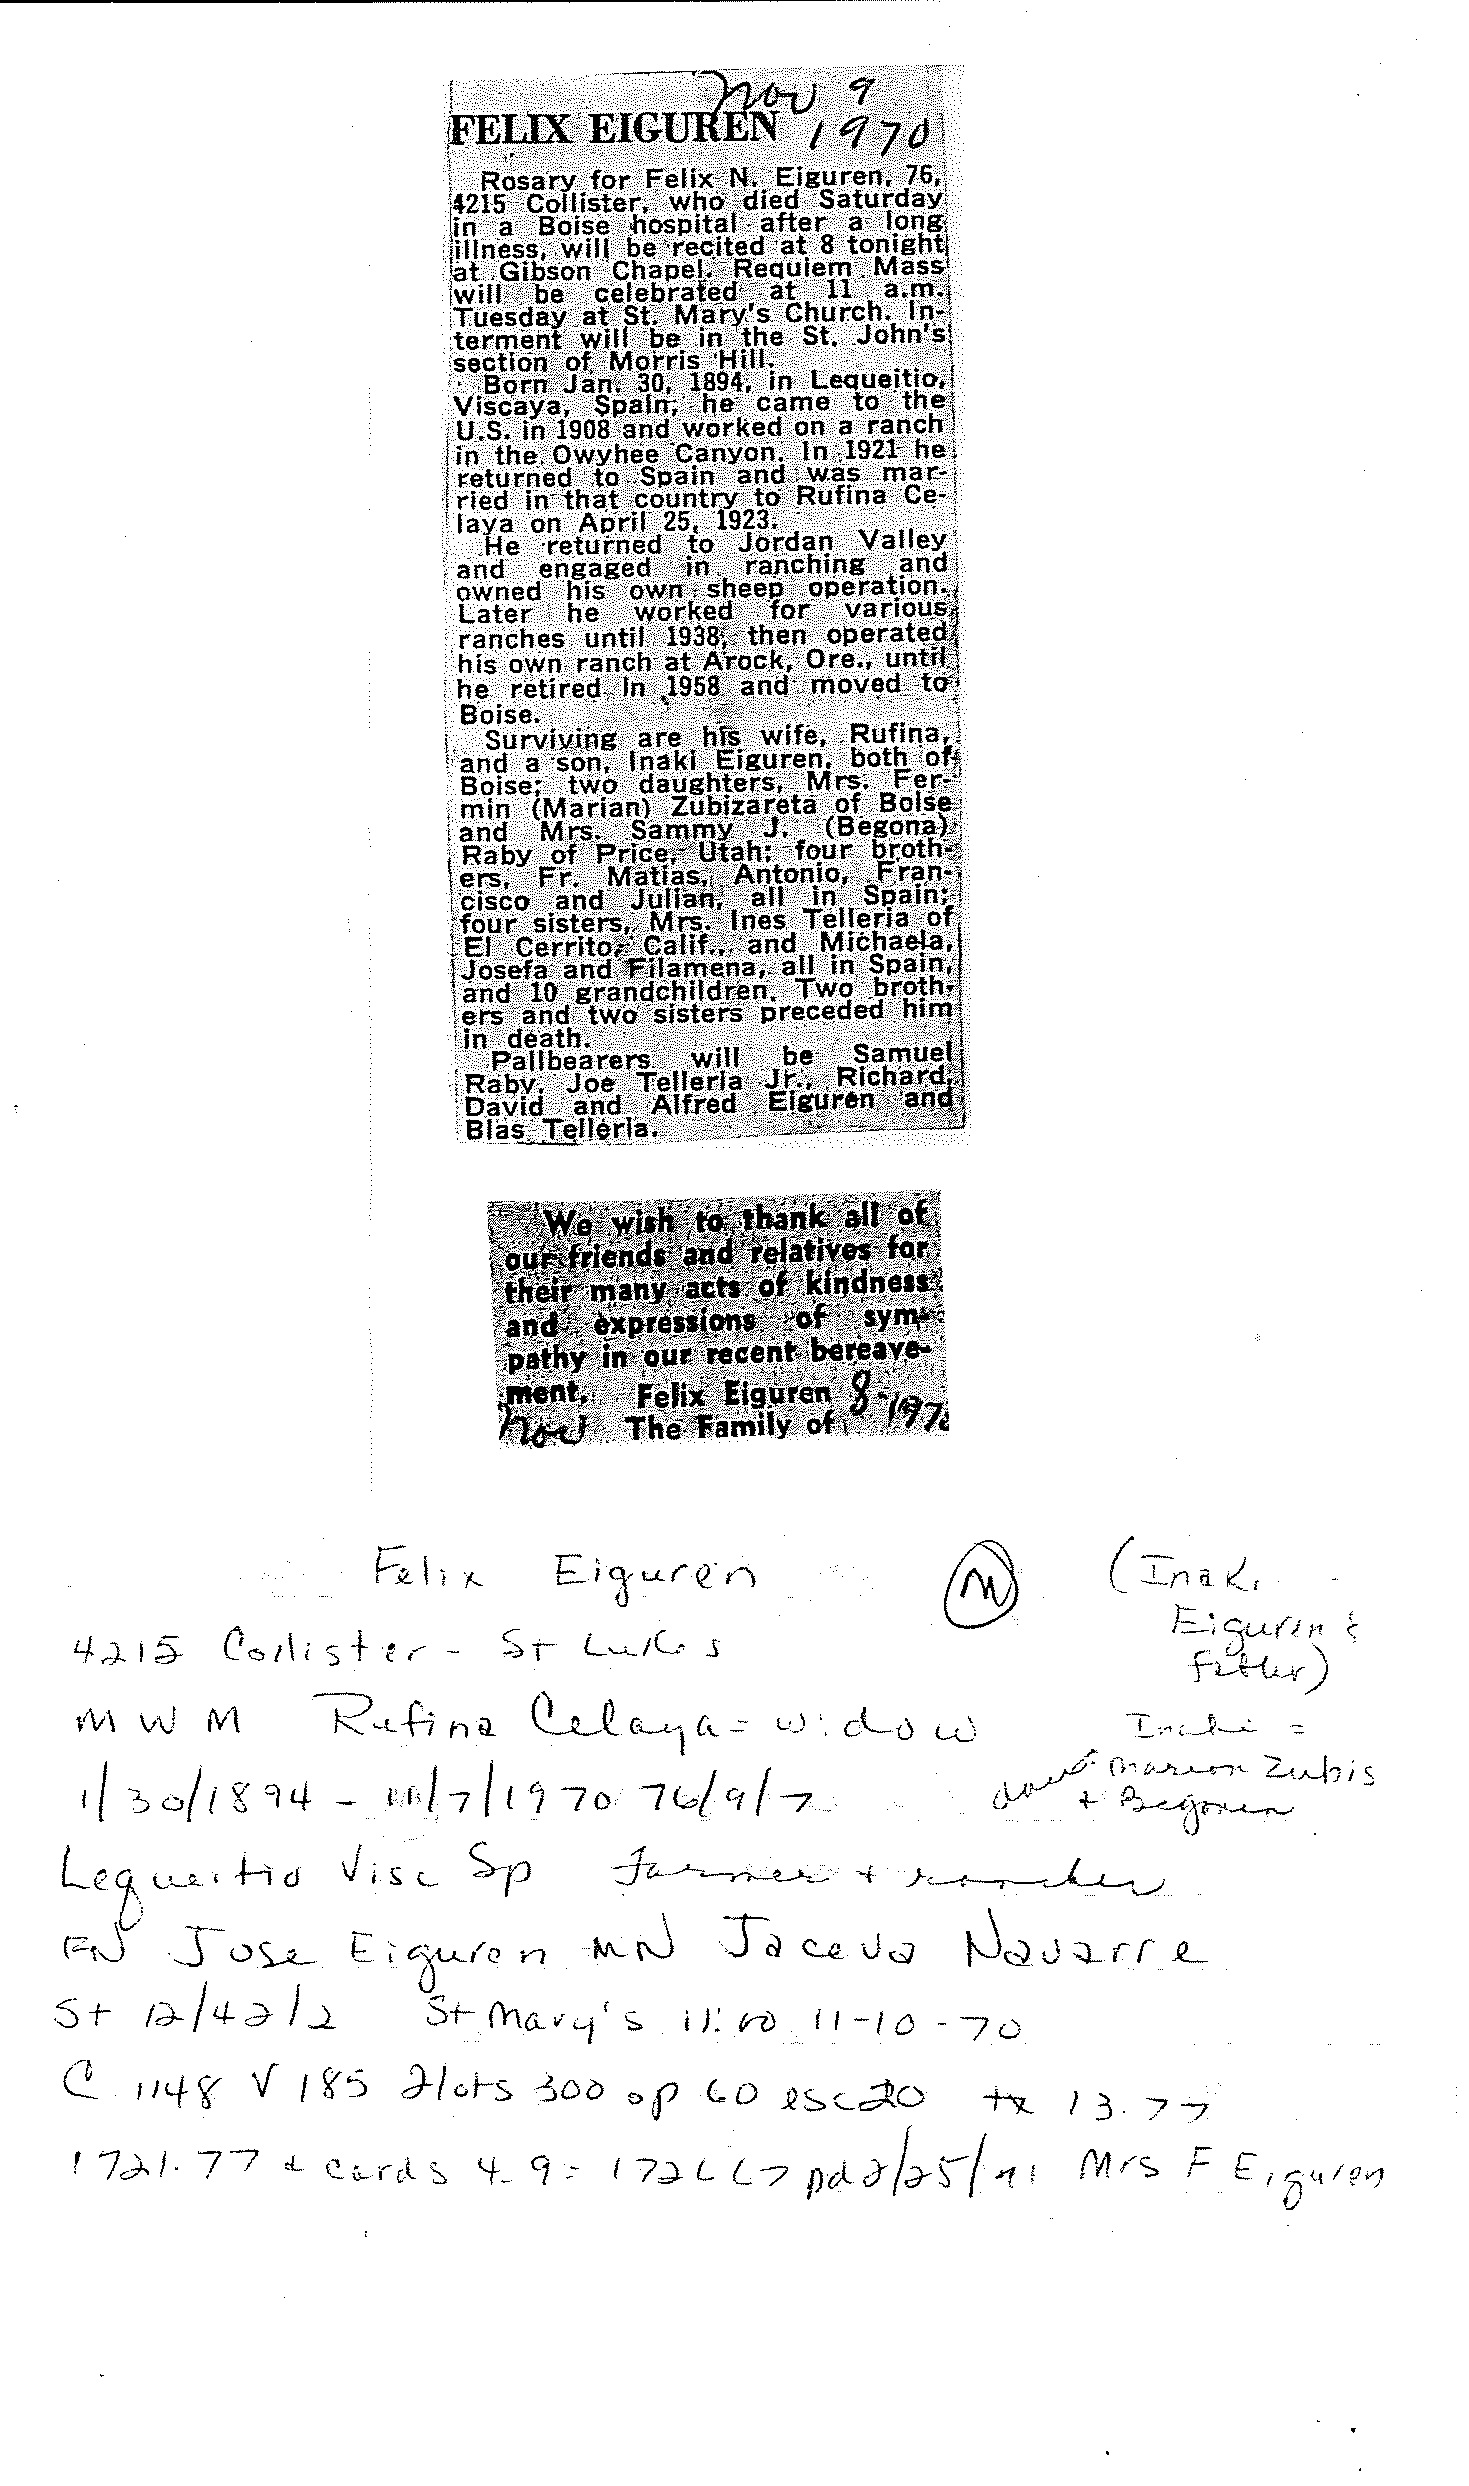 Nov 9
FELIX EIGUREN 1970
Rosary for Felix N. Eiguren, 76,
4215 Collister, who died Saturday
in a Boise hospital after a long
illness, will be recited at 8 tonight
at Gibson Chapel. Requiem Mass
will be celebrated at 11 a.m.
Tuesday at St. Mary's Church. In-
terment will be in the St. John's
section of Morris Hill.
Born Jan. 30, 1894, in Lequeitio,
Viscaya, Spain, he came to the
U.S. in 1908 and worked on a ranch
in the Owyhee Canyon. In 1921 he
returned to Spain and was mar-
ried in that country to Rufina Ce-
laya on April 25, 1923.
He returned to Jordan Valley
and engaged in ranching and
owned his own sheep operation.
Later he worked for various
ranches until 1938, then operated
his own ranch at Arock, Ore., until
he retired in 1958 and moved to
Boise.
Surviving are his wife, Rufina,
and a son, Inaki Eiguren, both of
Boise; two daughters, Mrs. Fer-
min (Marian) Zubizareta of Boise
and Mrs. Sammy J. (Begona)
Raby of Price, Utah; four broth-
ers, Fr. Matias, Antonio, Fran-
cisco and Julian, all in Spain;
four sisters, Mrs. Ines Telleria of
El Cerrito, Calif., and Michaela,
Josefa and Filamena, all in Spain,
and 10 grandchildren. Two broth-
ers and two sisters preceded him
in death.
Pallbearers will be Samuel
Raby, Joe Telleria Jr., Richard,
David and Alfred Eiguren and
Blas Telleria.
We wish to thank all of
our friends and relatives for
their many acts of kindness
and expressions of sym-
pathy in our recent bereave-
ment, Felix Eiguren 8-1970
Nov The Family of
Felix Eiguren M (Inaki
Eiguren's
father)
4215 Collister - St Lukes
M W M Rufina Celaya = widow
Inaki =
Marion Zubis
+ Begonia
1/30/1894 - 11/7/1970 76/9/7
Lequeitio Visc Sp Farmer + rancher
FN Jose Eiguren MN Navarre
St 12/42/2 St Mary's 11:00 11-10-70
C 1148 V 185 2lots 300 op 60 esc20 tx 13.77
1721.77 + cards 4.9 = 1726.67 pd 2/25/71 Mrs F Eiguren